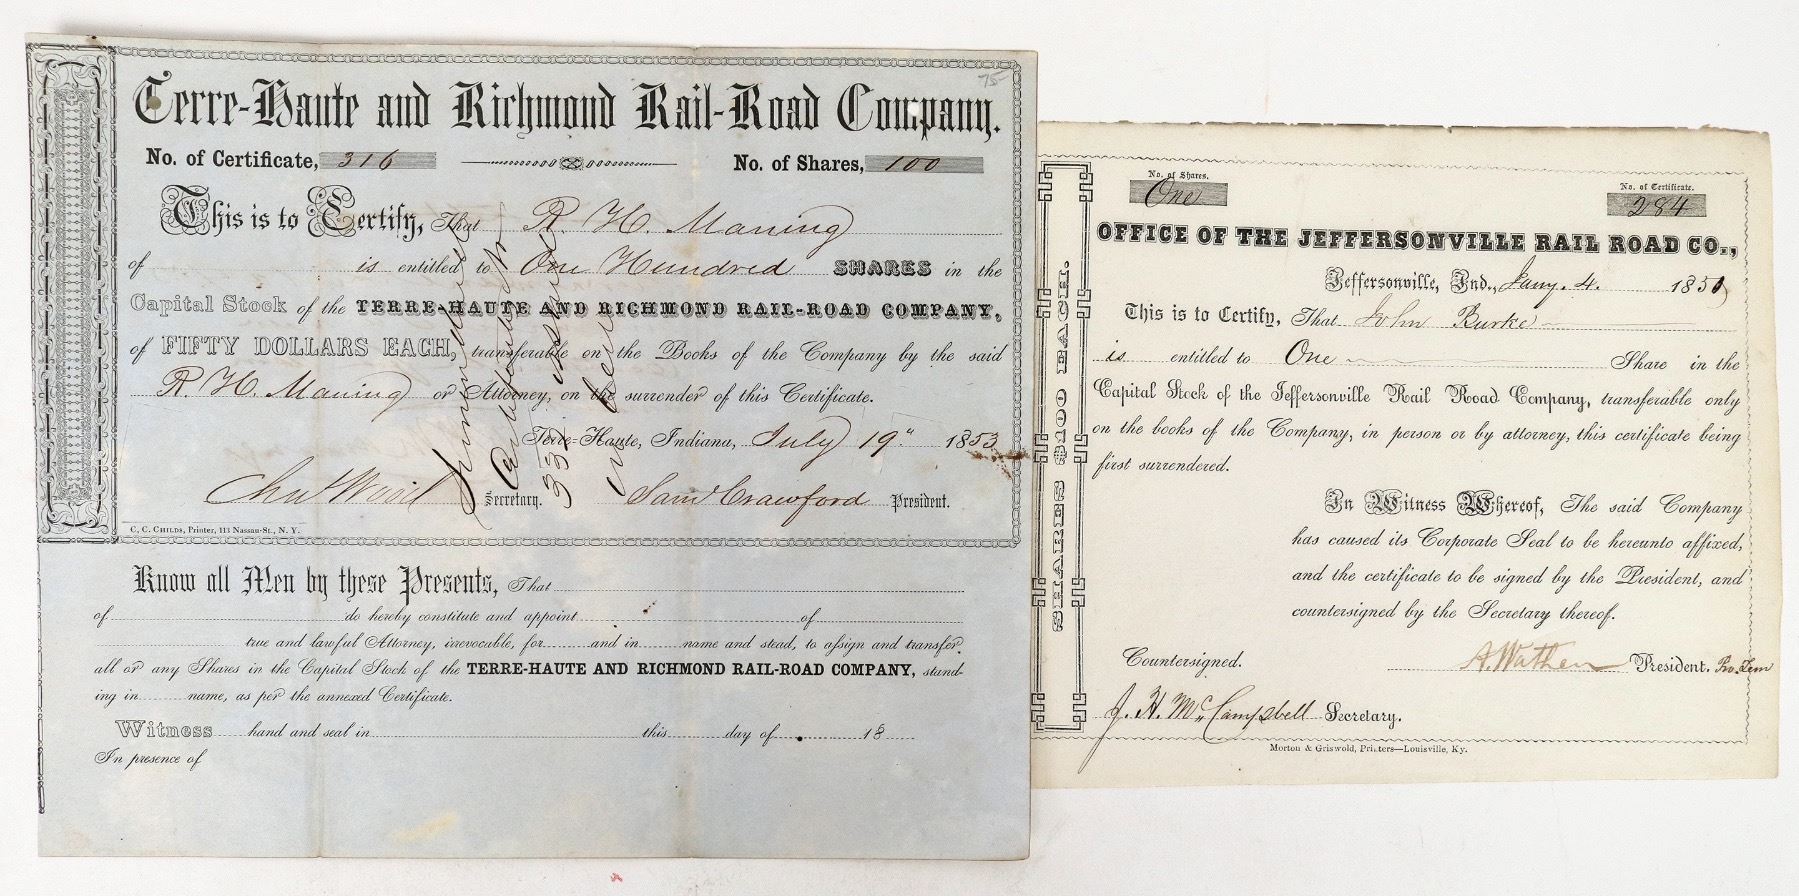 75-
Terre-Haute and Richmond Rail-Road Company.
No. of Certificate, 316 No. of Shares, 100
This is to Certify, That R. H. Maning
of is entitled to One Hundred SHARES in the
Capital Stock of the TERRE-HAUTE AND RICHMOND RAIL-ROAD COMPANY,
of FIFTY DOLLARS EACH, transferable on the Books of the Company by the said
R. H. Maning or Attorney, on the surrender of this Certificate.
Terre-Haute, Indiana, July 19" 1853
Chas Wood Secretary. Saml Crawford President.
C. C. CHILDS, Printer, 113 Nassau-St., N. Y.
332 issued
Know all Men by these Presents, That
of do hereby constitute and appoint of
true and lawful Attorney, irrevocable, for and in name and stead, to assign and transfer
all or any Shares in the Capital Stock of the TERRE-HAUTE AND RICHMOND RAIL-ROAD COMPANY, stand-
ing in name, as per the annexed Certificate.
Witness hand and seal in this day of 18
In presence of
SHARES $100 EACH.
No. of Shares. No. of Certificate.
One 284
OFFICE OF THE JEFFERSONVILLE RAIL ROAD CO.,
Jeffersonville, Ind., Jany. 4. 1851
This is to Certify, That John Burke
is entitled to One Share in the
Capital Stock of the Jeffersonville Rail Road Company, transferable only
on the books of the Company, in person or by attorney, this certificate being
first surrendered.
In Witness Whereof, The said Company
has caused its Corporate Seal to be hereunto affixed,
and the certificate to be signed by the President, and
countersigned by the Secretary thereof.
Countersigned. A. Wathen President. Pro. Tem
J. H. McCampbell Secretary.
Morton & Griswold, Printers—Louisville, Ky.